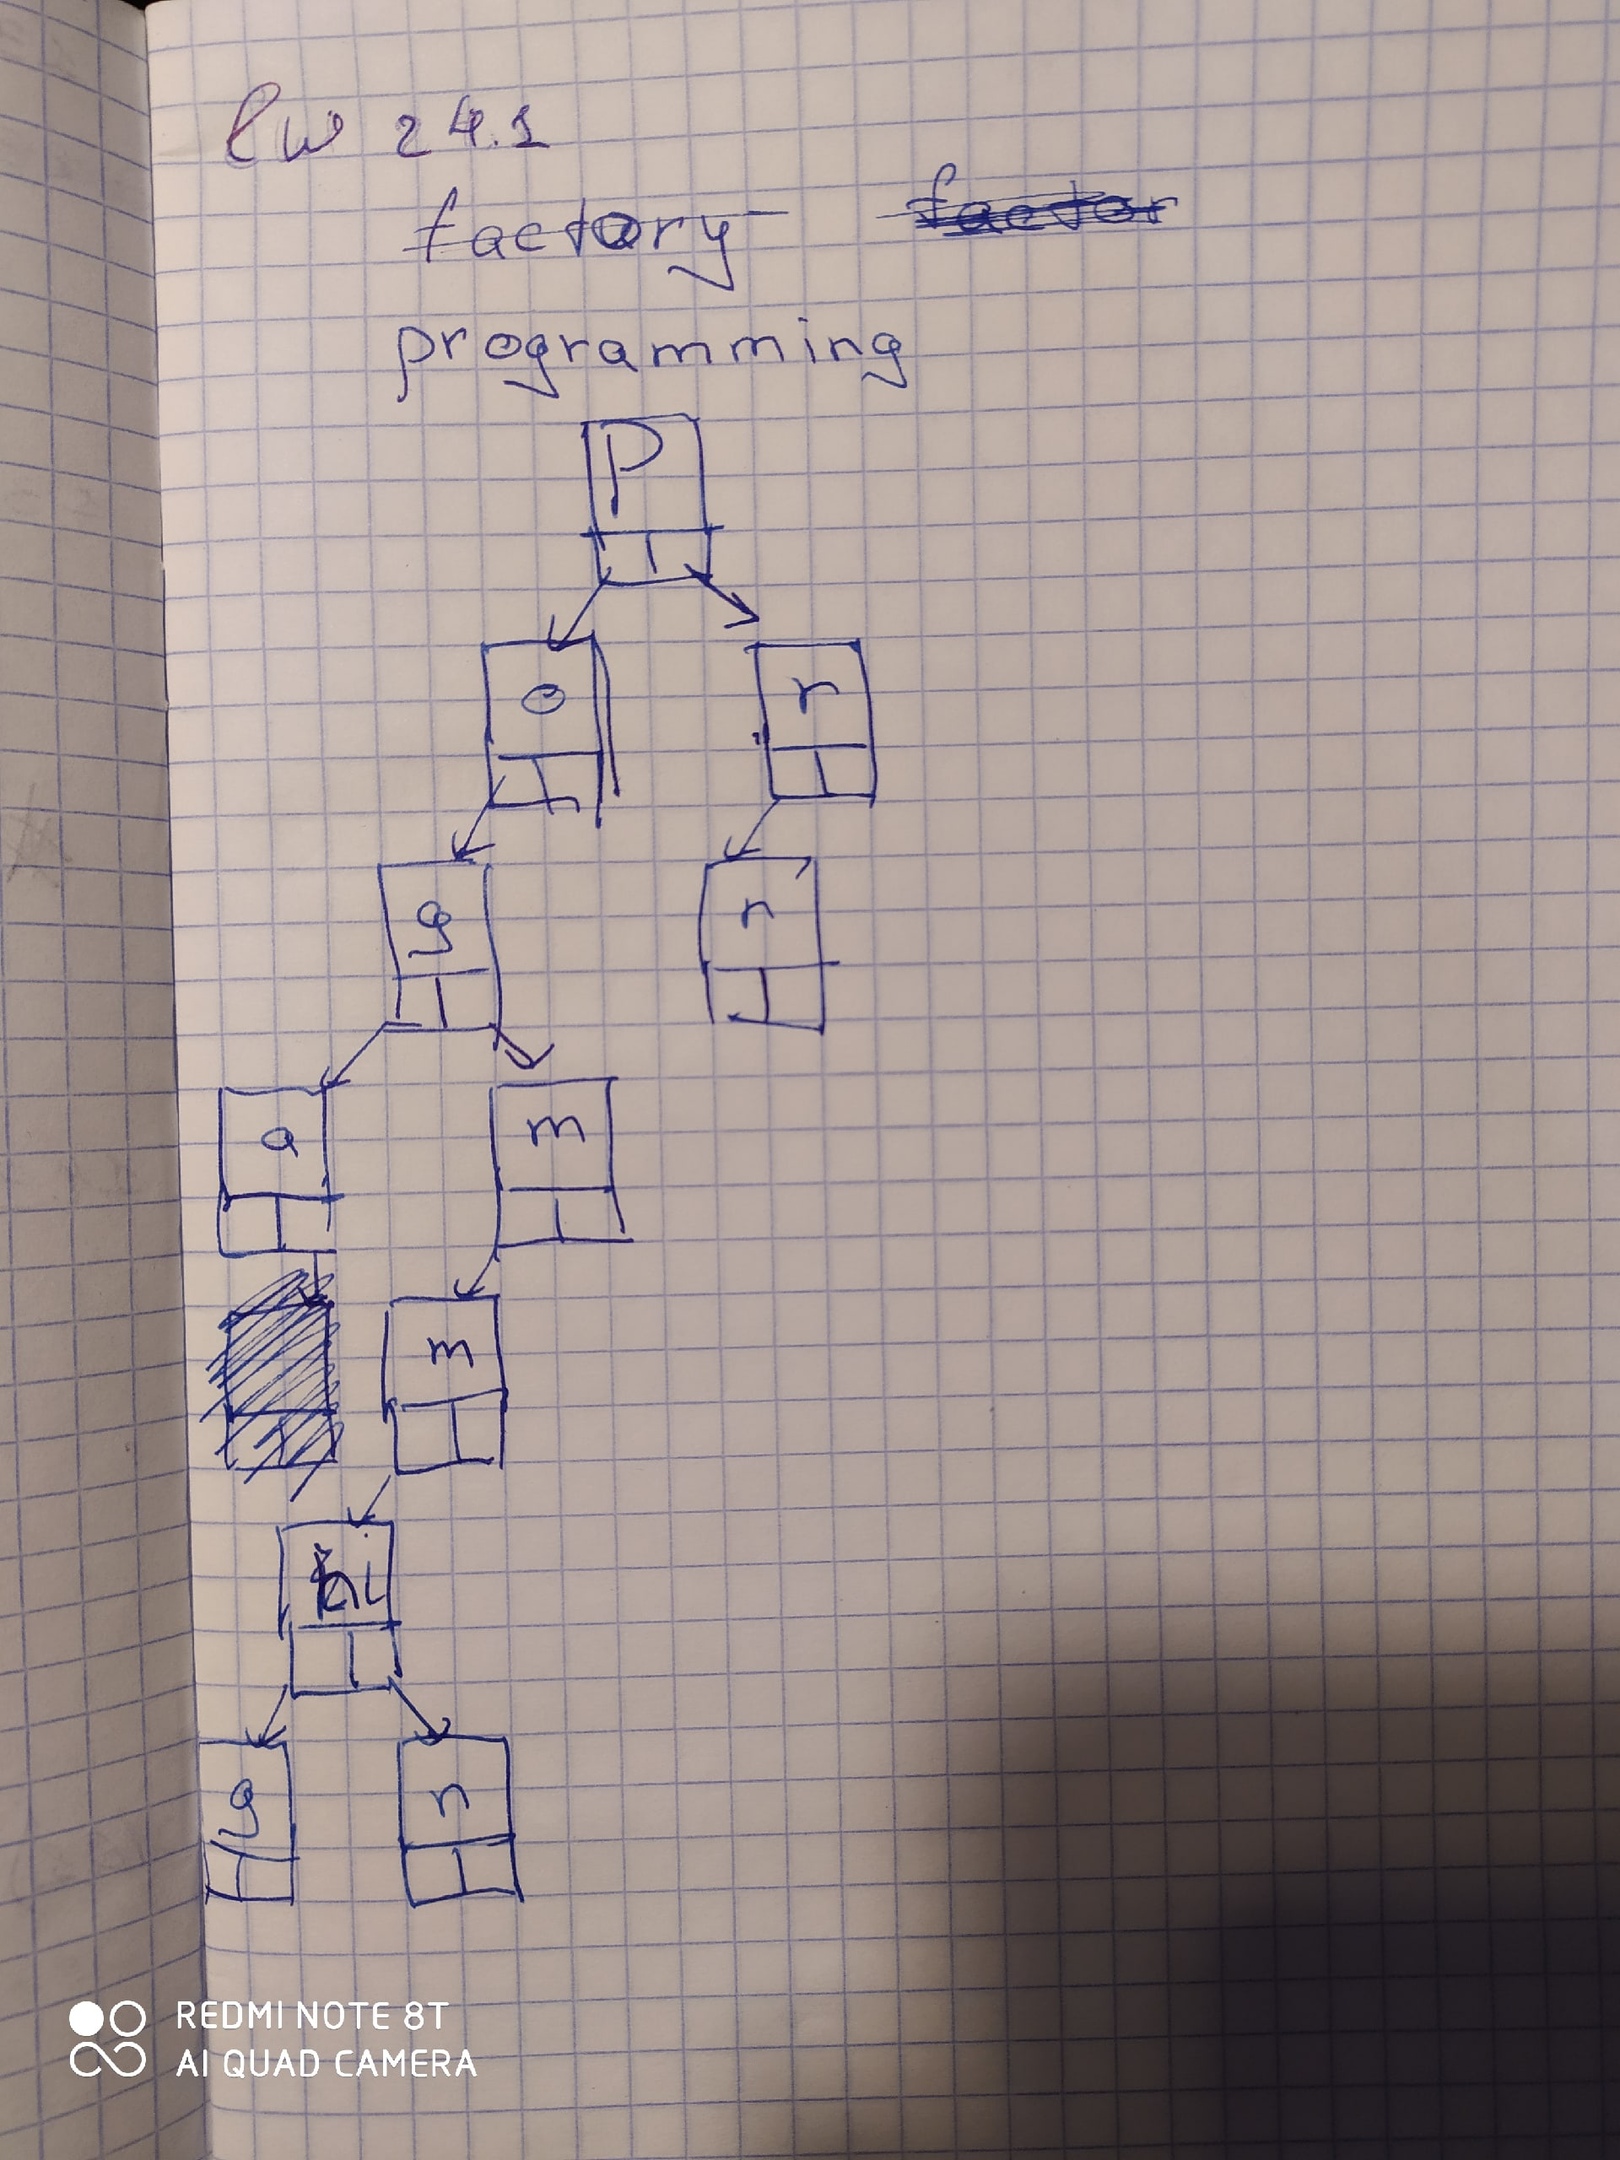 lw 24.1
factory factor
programming
p
o r
g r
a m
m
i
g n
REDMI NOTE 8T
AI QUAD CAMERA